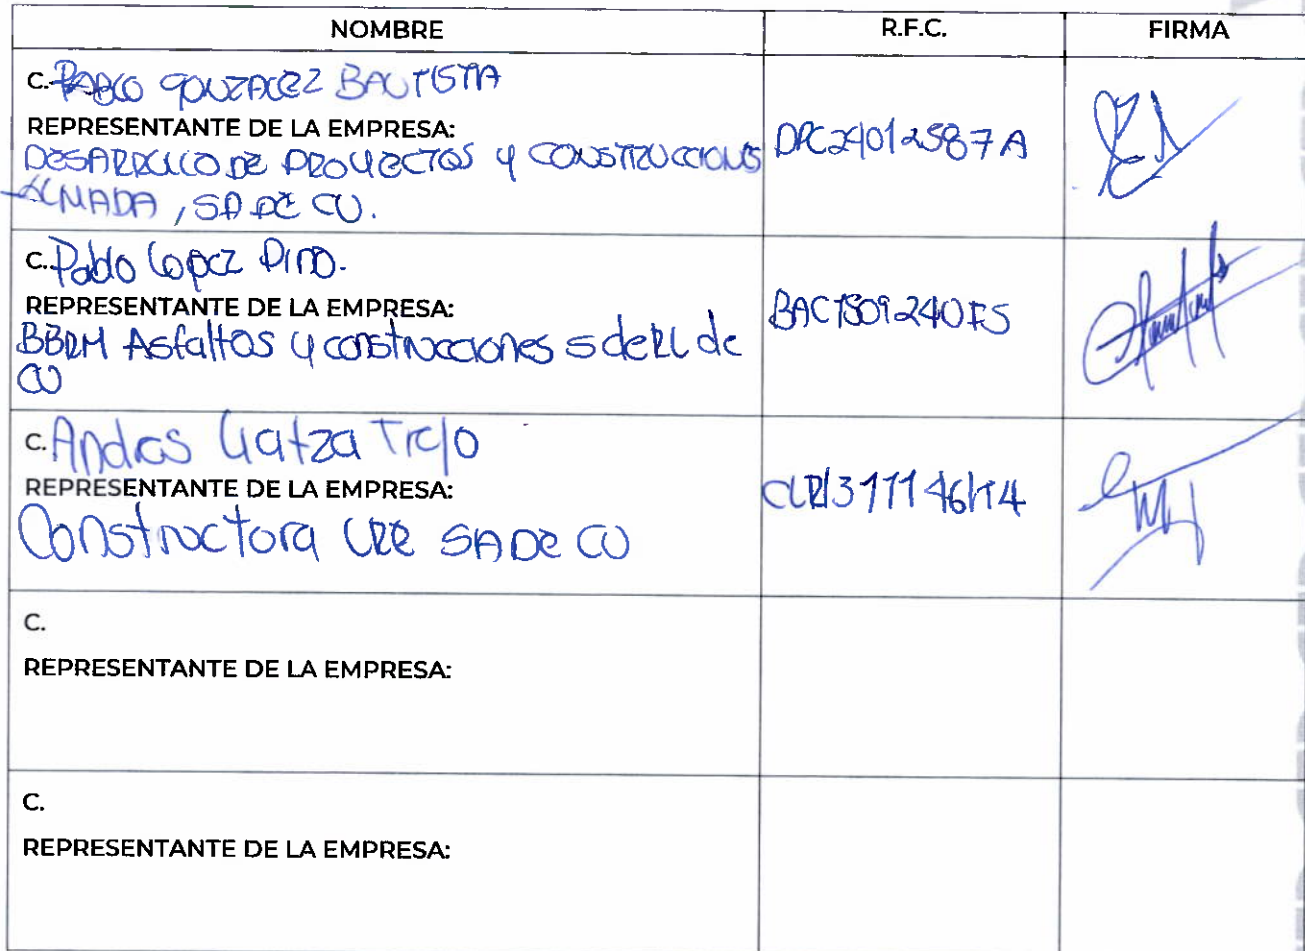 NOMBRE R.F.C. FIRMA
C. PABLO GONZALEZ BAUTISTA
REPRESENTANTE DE LA EMPRESA:
DESARROLLO DE PROYECTOS Y CONSTRUCCIONES DPC24012587A
ALMADA, SA DE CV.
C. Pablo Lopez Pino.
REPRESENTANTE DE LA EMPRESA: BAC1509240F5
BBRM Asfaltos y construcciones s de RL de
CV
C. Andres Gatza Trejo
REPRESENTANTE DE LA EMPRESA:
Constructora SA DE CV
C.
REPRESENTANTE DE LA EMPRESA:
C.
REPRESENTANTE DE LA EMPRESA: